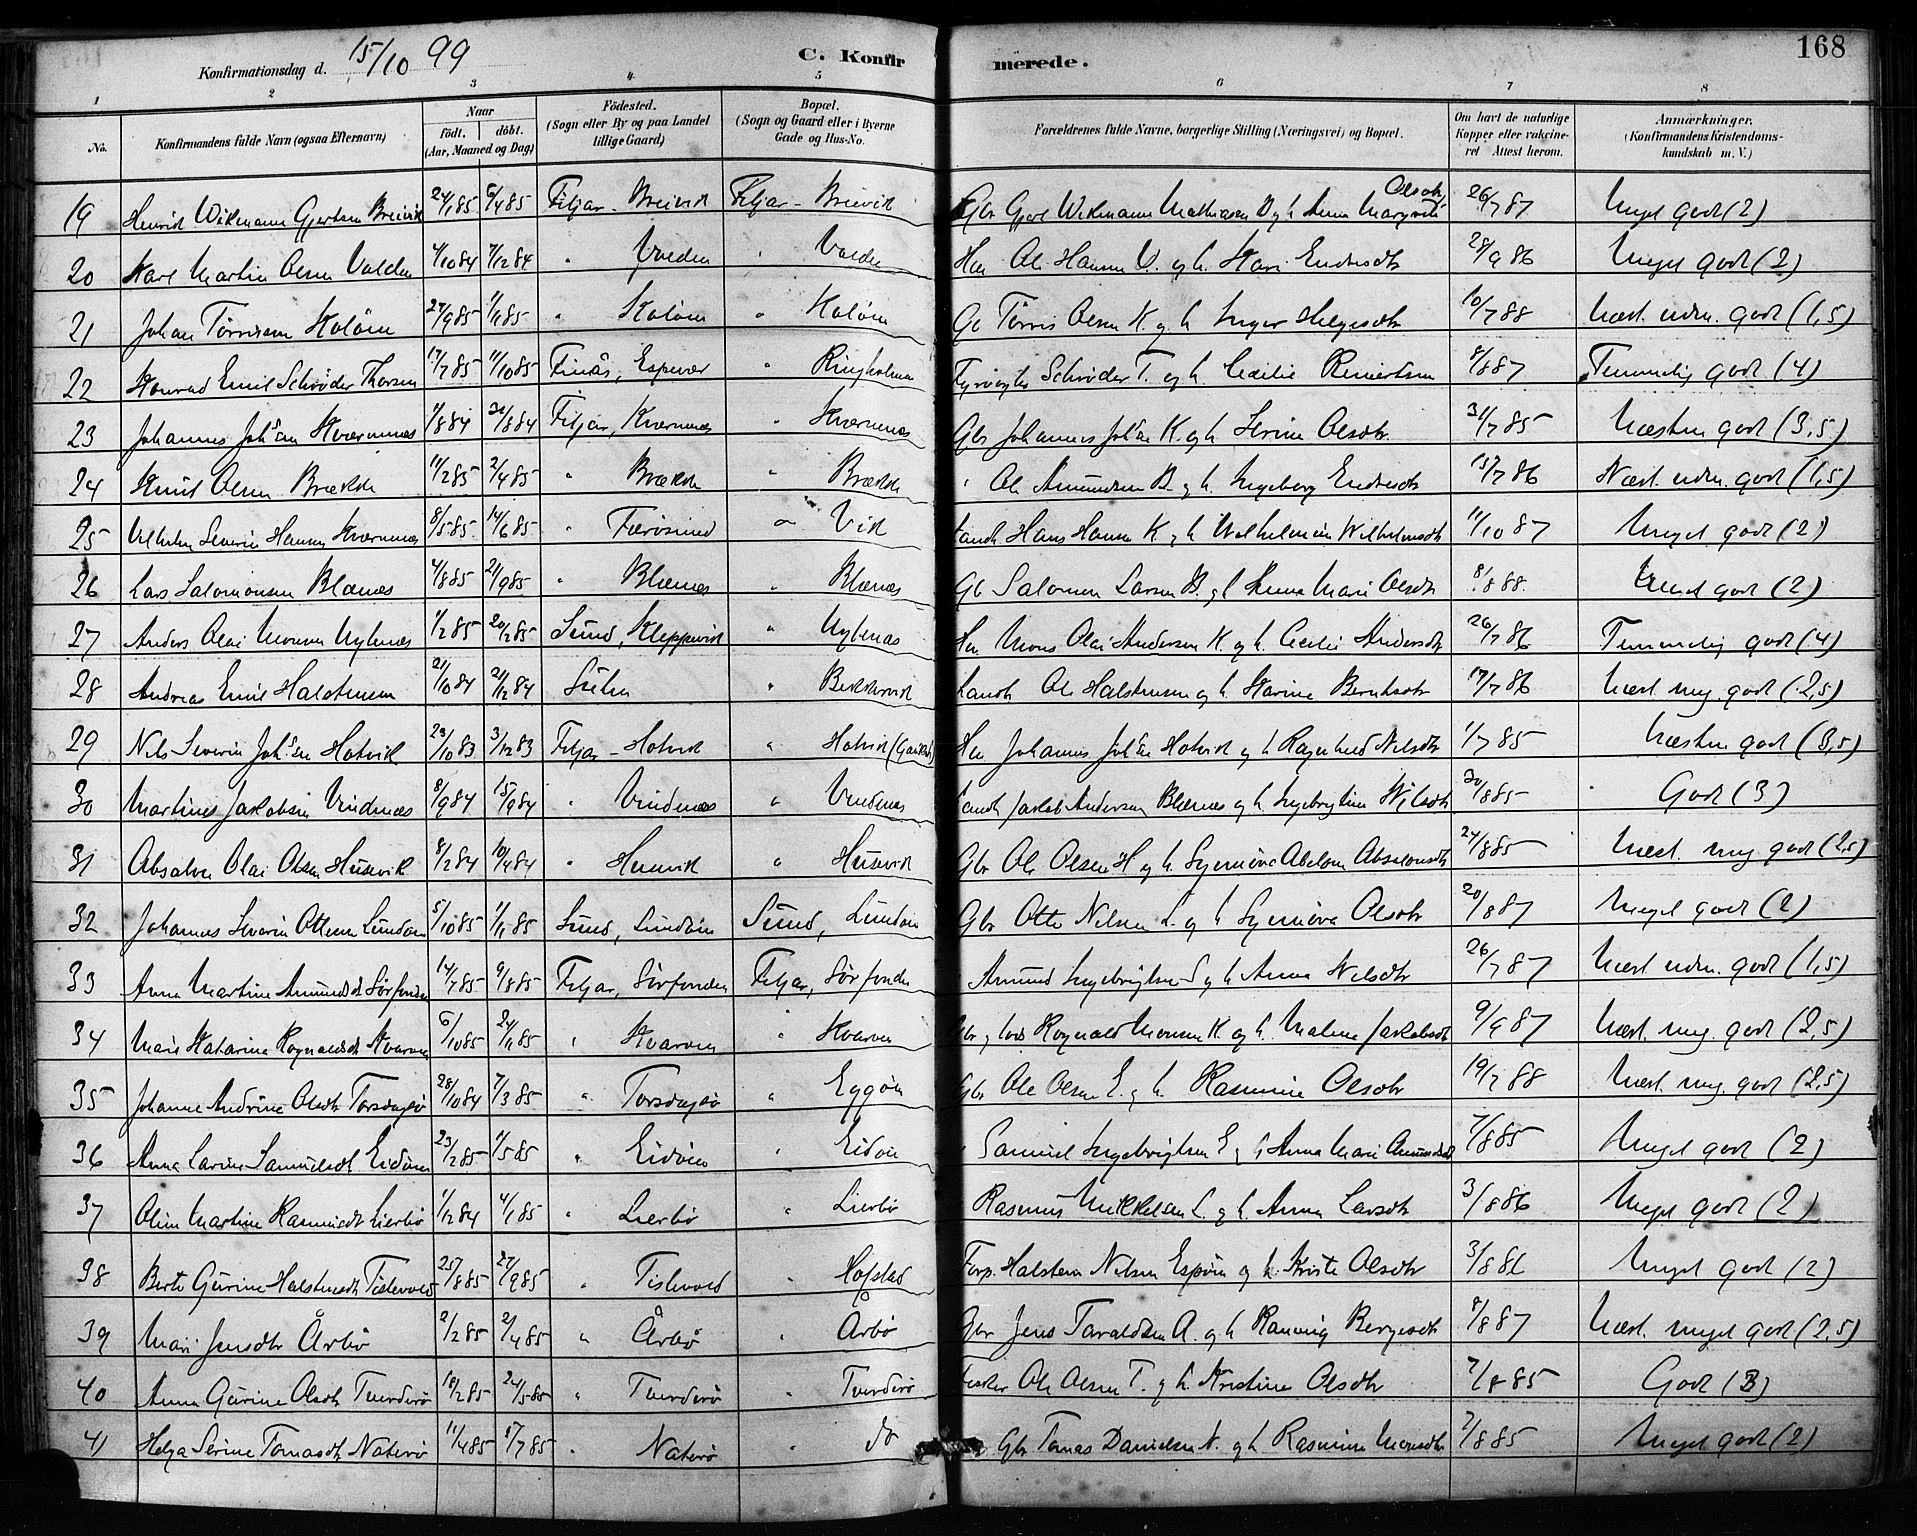 168
Konfirmationsdag d. 15/10 99
C. Konfirmerede.
1 2 3 4 5 6 7 8
No. Konfirmandens fulde Navn (ogsaa Efternavn) Naar födt. döbt. (Aar, Maaned og Dag) Födested. (Sogn eller By og paa Landet tillige Gaard) Bopæl. (Sogn og Gaard eller i Byerne Gade og Hus-No. Forældrenes fulde Navne, borgerlige Stilling (Næringsvei) og Bopæl. Om havt de naturlige Kopper eller vakcineret Attest herom. Anmærkninger. (Konfirmandens Kristendomskundskab m. V.)
19 Henrik Wikmann Gjertsen Breivik 24/1 85 6/4 85 Fitjar - Breivik Fitjar - Breivik Gbr Gjert Wikmann Mathiasen B og h. Anna Margrete Olsdtr 26/7 87 Meget godt (2)
20 Karl Martin Olsen Valden 4/10 84 7/12 84 " " Ole Hansen V. og h. Kari Endresdtr 28/9 86 Meget godt (2)
21 Johan Törrissen Kolöen 27/9 85 1/11 85 " Kolöen " Kolöen Gb Törris Olsen K. og h. Inger Helgesdtr 10/7 88 Næst. udm. godt (1,5)
22 Konrad Emil Schrøder Thorsen 17/7 85 11/10 85 Finås, Espevær " Ringholmen Fyrvogter Schrøder T. og h. Cecilie Reinertsen 8/8 87 Temmelig godt (4)
23 Johannes Johsen Kværnenæs 1/8 84 31/8 84 Fitjar, Kværnenæs " Kværnenæs Gbr Johannes Johsen K. og h. Serine Olsdtr 31/7 85 Næsten godt (3,5)
24 Knut Olsen Brække 11/2 85 2/4 85 " Brække " Brække " Ole Amundsen B. og h. Ingeborg Endresdtr 15/7 86 Næst. udm. godt (1,5)
25 Vilhelm Severin Hansen Kværnenæs 8/5 85 14/6 85 " Færösund " Vik Hans Hansen K. og h. Wilhelmine Wilhelmsdtr 11/10 87 Meget godt (2)
26 Lars Salomonsen Blænes 4/8 85 2/9 85 " Blænes " Blænes Gb Salomon Larsen B. og h. Anna Marie Olsdtr 8/8 88 Meget godt (2)
27 Anders Olai Monsen 1/2 85 20/2 85 Sund, Kleppevik " Mons Olai Andersen K. og h. Cecilie Andersdtr 26/7 86 Temmelig godt (4)
28 Andreas Emil Halstensen 21/10 84 21/12 84 " Bekkervik Ole Halstensen og h. Karine Berntsdtr 17/7 86 Næst. meg. godt (2,5)
29 Nils Severin Johsen Hatvik 23/10 83 3/12 83 Fitjar - Hatvik " Hatvik Johannes Johsen Hatvik og h. Ragnhild Nilsdtr 1/7 85 Næsten godt (3,5)
30 Martines Jakobsen Vindenæs 8/9 84 15/9 84 " Vindenæs " Vindenes Jakob Andersen Blænes og h. Nilsdtr 30/8 85 Godt (3)
31 Absalon Olai Olsen Husevik 8/2 84 10/4 84 " Husevik " Husevik Gbr Ole Olsen H og h. Synneva Abelone Absalonsdtr 24/8 85 Næst. meg. godt (2,5)
32 Johannes Severin Ottesen Lundöen 5/10 85 1/11 85 Sund, Lundöen Sund, Lundöen Gbr Otto Nilsen L. og h. Synneva Olsdtr 20/8 87 Meget godt (2)
33 Anna Martine Amundsdt Sörfonden 14/7 85 9/8 85 Fitjar, Sörfonden Fitjar, Sörfonden Amund Ingebrigtsen S og h. Anna Nilsdtr 26/7 87 Næst. udm. godt (1,5)
34 Marie Katarina Rognaldsdt Kvarven 6/10 85 24/11 85 " Kvarven " Kvarven Gbr og Lods Rognald Monsen K. og h. Malena Jakobsdt 9/9 87 Næst. meg. godt (2,5)
35 Johanne Andrine Olsdtr Torsdagsø 28/10 84 7/3 85 " Torsdagsø " Eggöen Gbr Ole Olsen E. og h. Rasmine Olsdtr 19/7 88 Næst. meg. godt (2,5)
36 Anna Karine Samuelsdt Eidöen 23/2 85 1/5 85 " Eidöen " Eidöen " Samuel Ingebrigtsen E og h. Anna Marie Amundsdt 7/8 85 Meget godt (2)
37 Oline Martine Rasmusdt Lierbø 1/12 84 4/1 85 " Lierbø " Lierbø Rasmus Mikkelsen L. og h. Anna Larsdtr 3/8 86 Meget godt (2)
38 Berte Gurine Halstensdt Tislevold 25/8 85 27/9 85 " Tislevold " Hofstad Forp. Halsten Nilsen Espöen og h. Kristi Olsdtr 3/8 86 Meget godt (2)
39 Mari Jensdtr Årbø 2/2 85 2/4 85 " Årbø " Arbø Gbr Jens Taraldsen A. og h. Ranveig Børgesdtr 8/8 87 Næst. meget godt (2,5)
40 Anna Gurine Olsdtr Tverderø 18/2 85 24/5 85 " Tverderø " Tverderø Fisker Ole Olsen T. og h. Kristine Olsdtr 7/8 85 Godt (3)
41 Helga Serine Tomasdtr Naterø 11/4 85 5/7 85 " Naterø " do Gbr Tomas Danielsen N. og h. Rasmine Monsdtr 7/8 85 Meget godt (2)